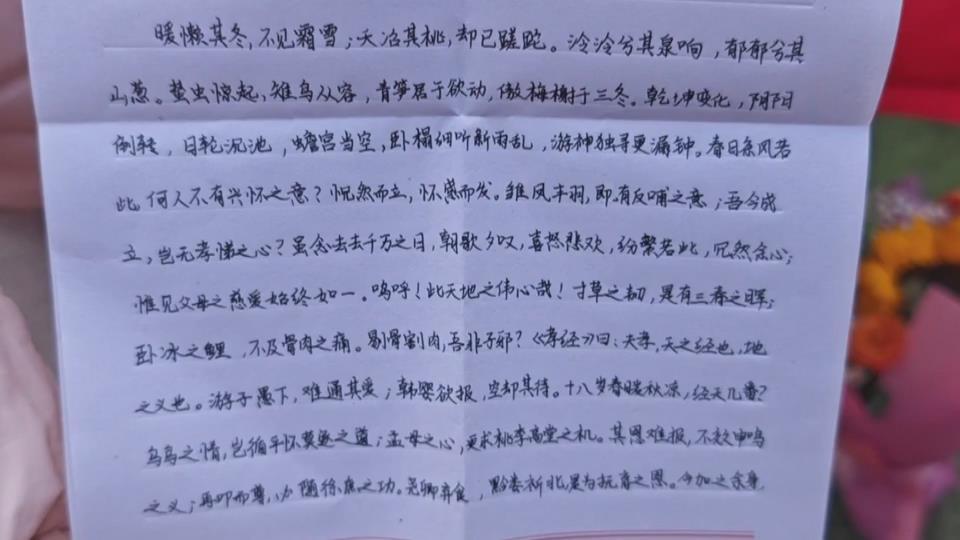 暖懒其冬，不见霜雪；夭冶其桃，却已蹉跎。泠泠兮其泉响，郁郁兮其
山葱。蛰虫惊起，雉鸟从容，青笋君子欲动，傲梅榭于三冬。乾坤变化，阴阳
倒转，日轮沉池，蟾宫当空，卧榻细听新雨乱，游神独寻更漏钟。春日条风若
此，何人不有兴怀之意？怳然而立，怀感而发。雏凤丰羽，即有反哺之意；吾今成
立，岂无孝悌之心？虽念去去千万之日，朝歌夕叹，喜怒悲欢，纷繁若此，冗然余心；
惟见父母之慈爱始终如一。呜呼！此天地之伟心哉！寸草之韧，是有三春之晖；
卧冰之鲤，不及骨肉之痛。剔骨割肉，吾非子邪？《孝经》曰：夫孝，天之经也，地
之义也。游子愚下，难通其爱；韩婴欲报，空却其待。十八岁春暖秋凉，经天几番？
乌鸟之情，岂循平怀莫逾之道；孟母之心，更求桃李高堂之机。其恩难报，不效申鸣
之义；再叩而尊，办随徐庶之功。羌卿弃食，黔娄祈北，是为抚育之恩。今加之余身